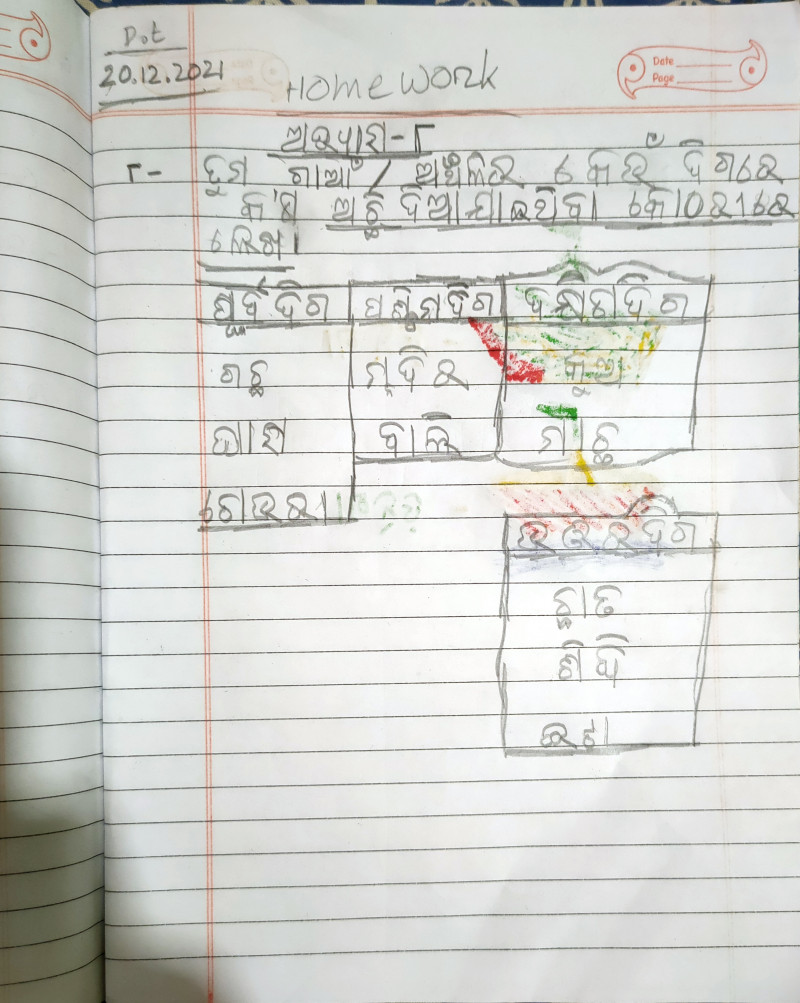 Dot
20.12.2021
Home work
Date
Page
ଅଭ୍ୟାସ-୮
୮- ତୁମ ଗାଆଁ / ଅଞ୍ଚଳର କେଉଁ ଦିଗରେ
କ'ଣ ଅଛି ଦିଆଯାଇଥିବା କୋଠରୀରେ
ଲେଖ।
ପୂର୍ବଦିଗ ପଶ୍ଚିମଦିଗ ଦକ୍ଷିଣଦିଗ
ଗଛ ମନ୍ଦିର କୁଅ
ଘାସ ବାଲି ମାଛ
ଗୋବର।
ଉତ୍ତରଦିଗ
ଛାତ
ଶିଢି
ଇଟା